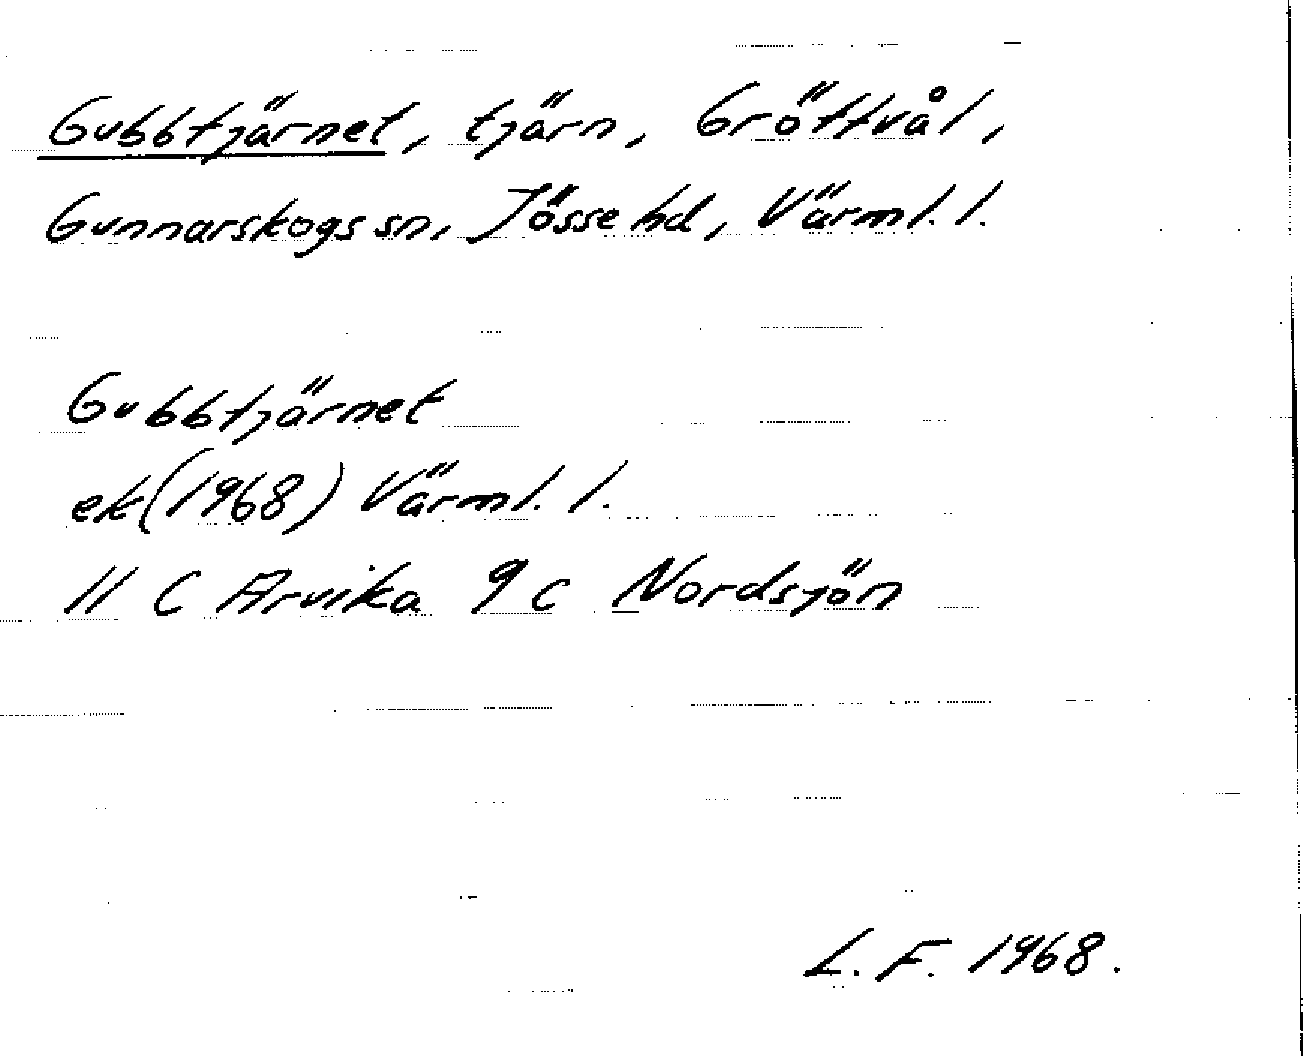 Gubbtjärnet, tjärn, Gröttvål,
Gunnarskogs sn, Jösse hd, Värml. l.
Gubbtjärnet
ek (1968) Värml. l.
11 C Arvika 9 c Nordsjön
L. F. 1968.